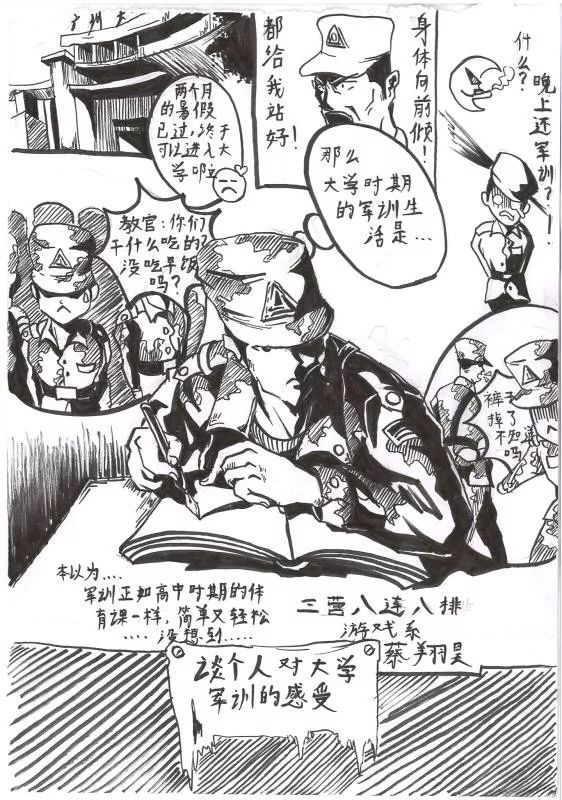 两个月
的暑假
已过,终于
可以进入大
学啦
都给我站好!
身体向前倾!
什么?
晚上还军训?!
那么
大学时期
的军训生
活是...
教官:你们
干什么吃的?
没吃早饭
吗?
裤子
掉了
不知道
吗?
本以为....
军训正如高中时期的体
育课一样,简单又轻松
....没想到.....
三营八连八排
游戏系
蔡翔昊
谈个人对大学
军训的感受